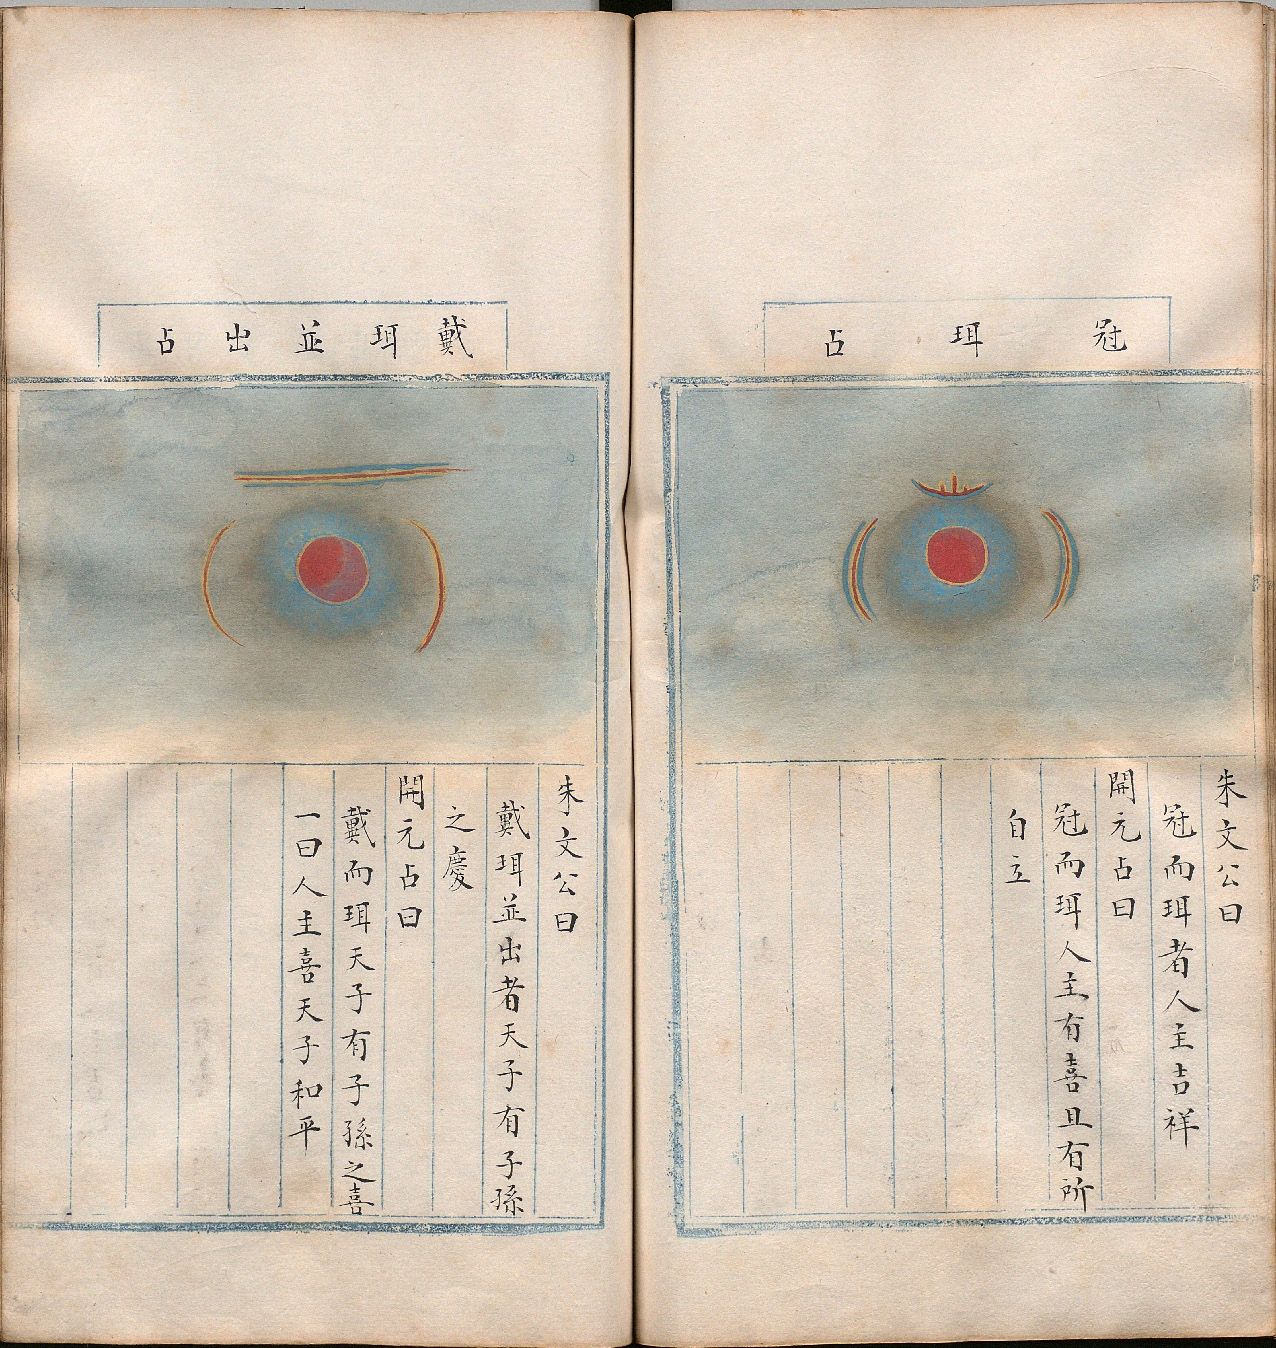 冠珥占
朱文公曰
冠而珥者人主吉祥
開元占曰
冠而珥人主有喜且有所
自立
戴珥並出占
朱文公曰
戴珥並出者天子有子孫
之慶
開元占曰
戴而珥天子有子孫之喜
一曰人主喜天子和平